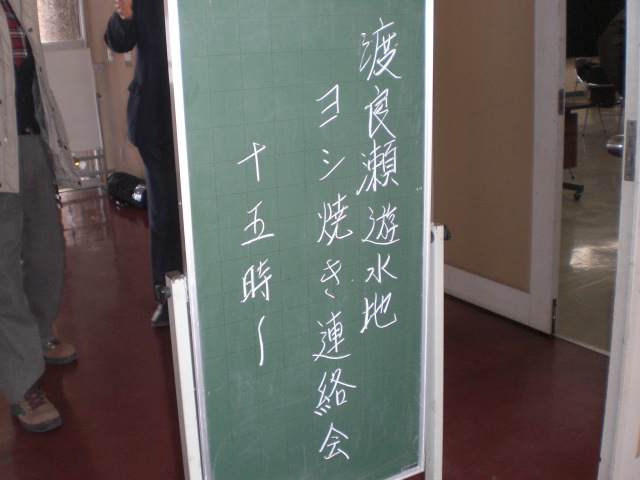 渡良瀬遊水地
ヨシ焼き連絡会
十五時〜